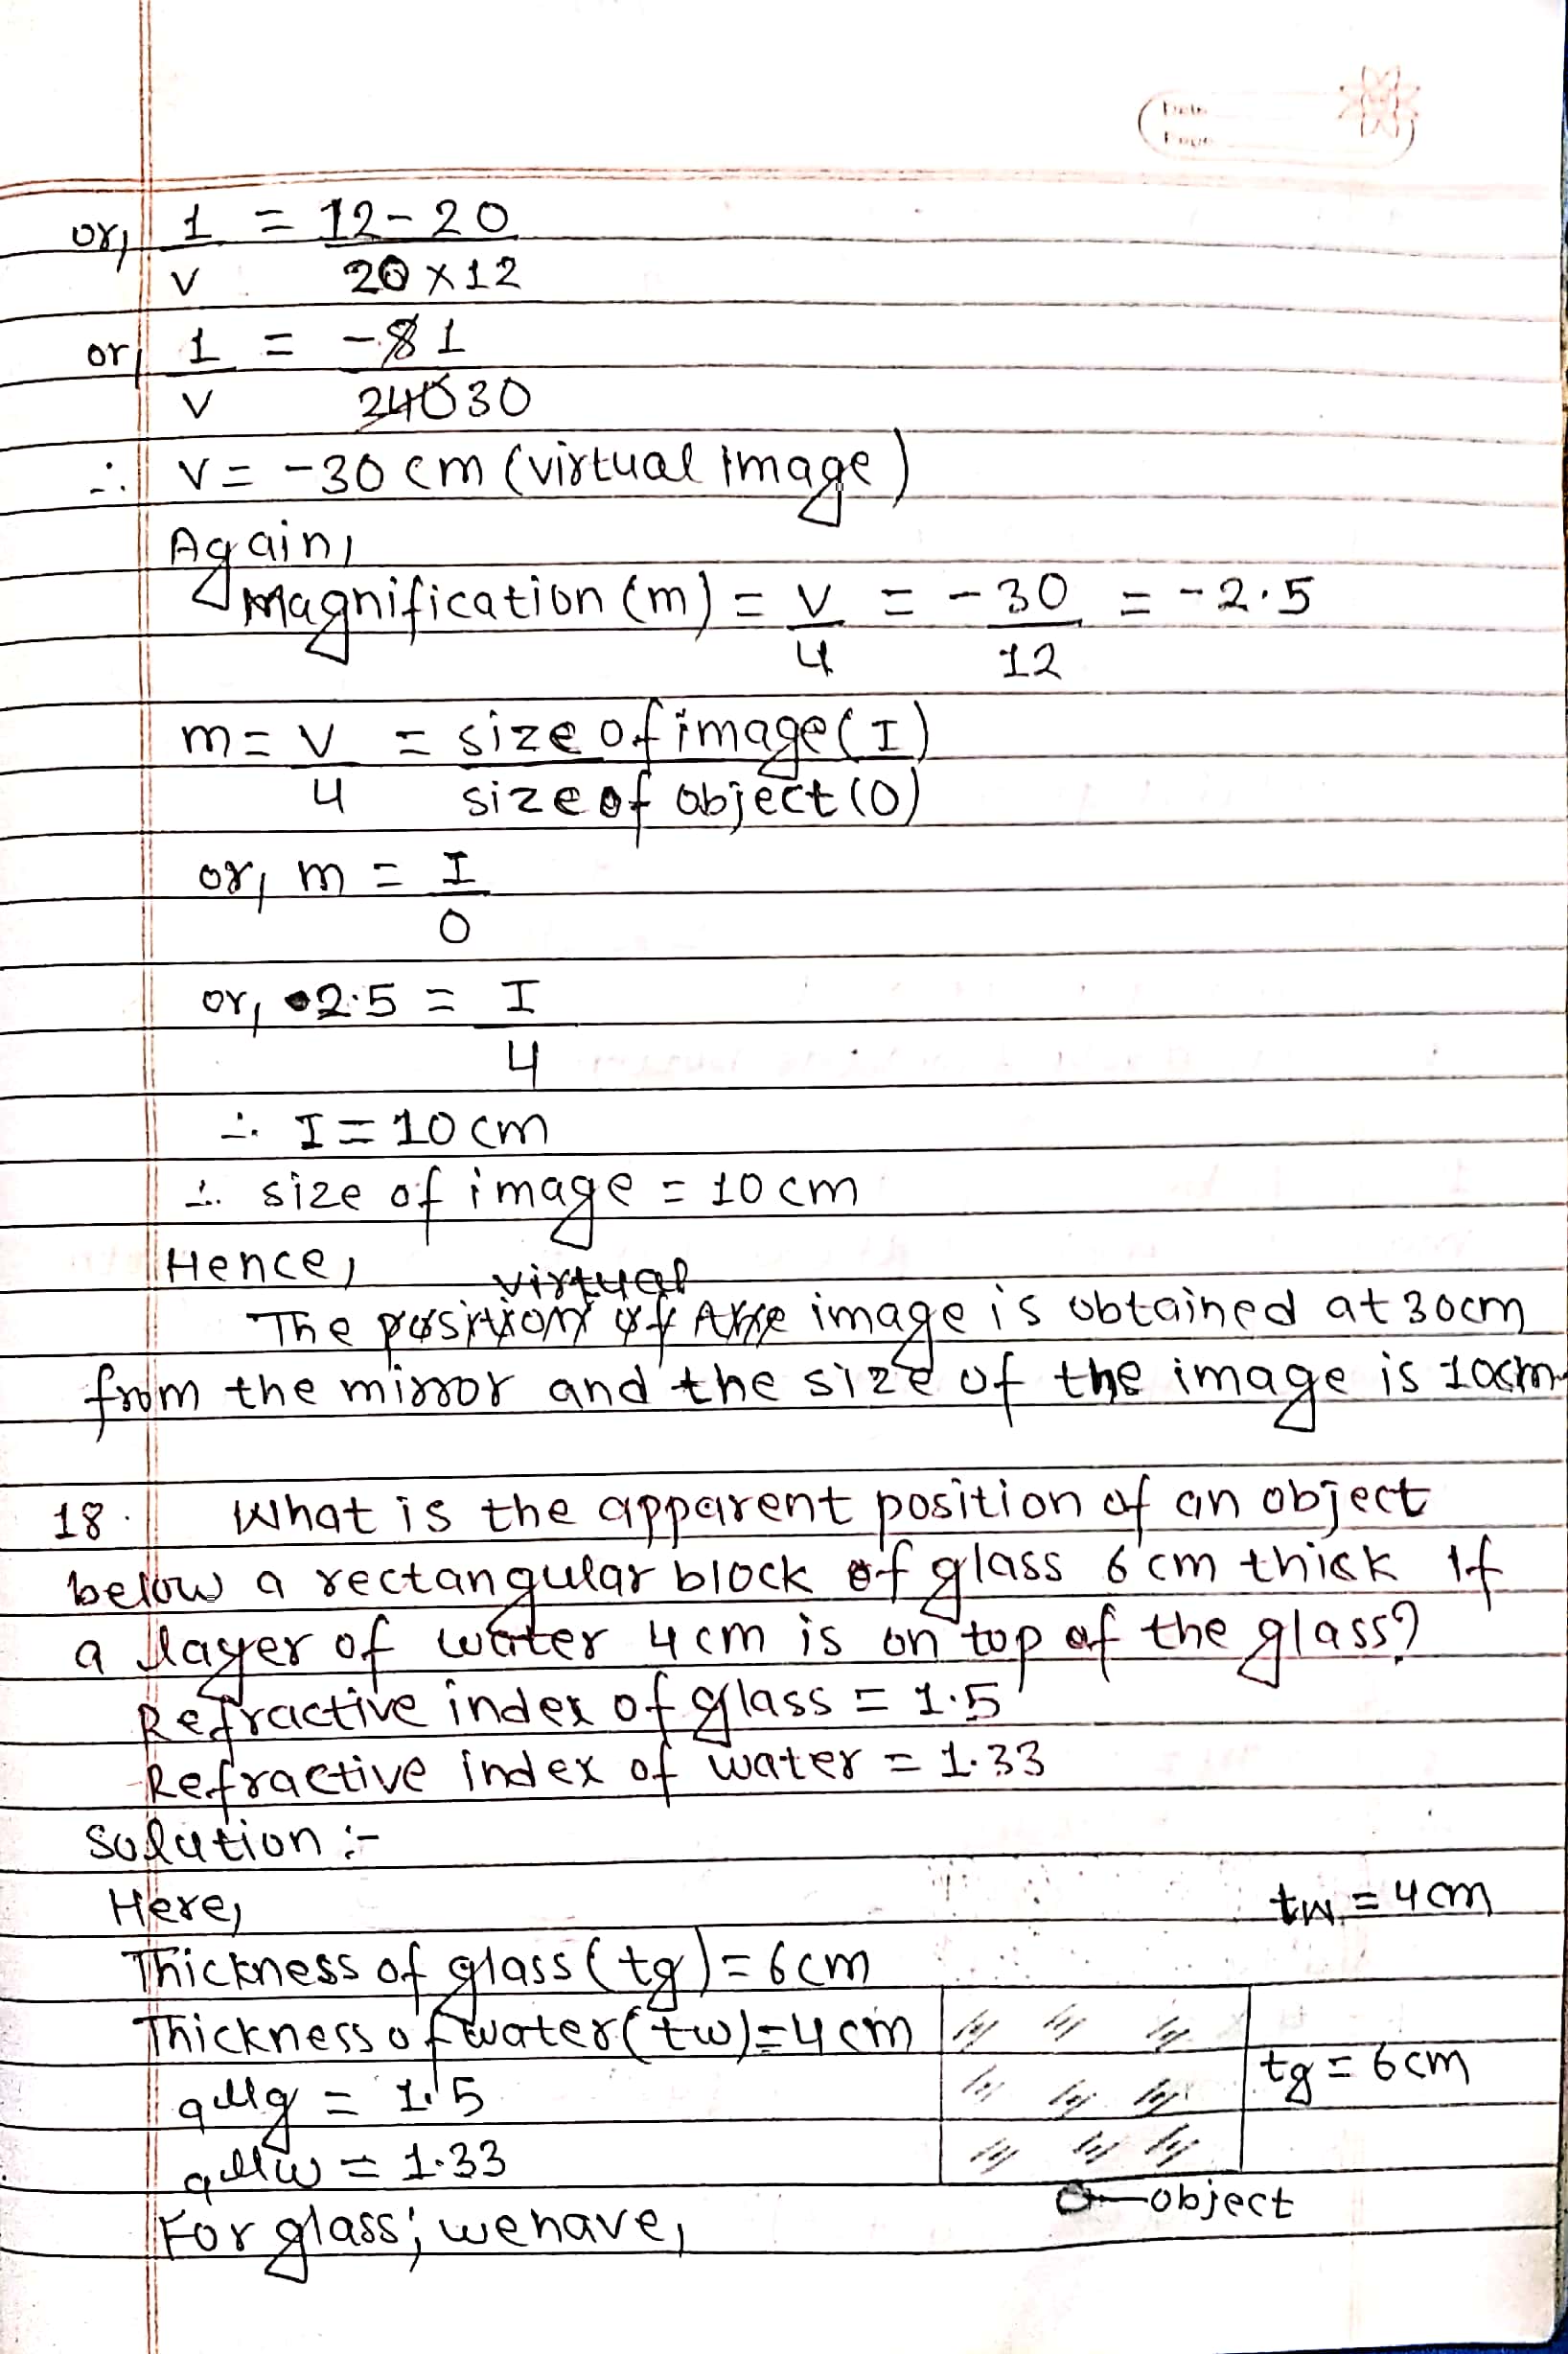 Date
Page
or, 1/v = 12-20/20×12
or, 1/v = -8 1/240 30
∴ v = -30 cm (virtual image)
Again,
Magnification (m) = v/u = -30/12 = -2.5
m = v/u = size of image (I)/size of object (O)
or, m = I/O
or, 2.5 = I/4
∴ I = 10 cm
∴ size of image = 10 cm
Hence,
The position of the virtual image is obtained at 30cm
from the mirror and the size of the image is 10cm.
18. What is the apparent position of an object
below a rectangular block of glass 6 cm thick if
a layer of water 4 cm is on top of the glass?
Refractive index of glass = 1.5
Refractive index of water = 1.33
Solution :-
Here,
tw = 4cm
Thickness of glass (tg) = 6cm
Thickness of water (tw) = 4cm
tg = 6cm
aμg = 1.5
aμw = 1.33
object
For glass; we have,